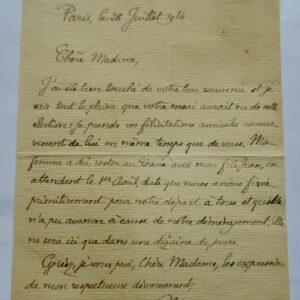 Paris, le 28 Juillet 1914
Chère Madame,
J'ai été bien touché de votre bon souvenir et je
sais tout le plaisir que votre mari aurait eu de cette
élection; je prends vos félicitations amicales comme
venant de lui en même temps que de vous. Ma
femme a dû rester au Havre avec mon fils Jean, en
attendant le 1er Août, date que nous avions fixée
primitivement pour notre départ à tous et qu'elle
n'a pu avancer à cause de notre déménagement; elle
ne sera ici que dans une dizaine de jours.
Croyez, je vous prie, Chère Madame, les expressions
de mon respectueux dévouement,